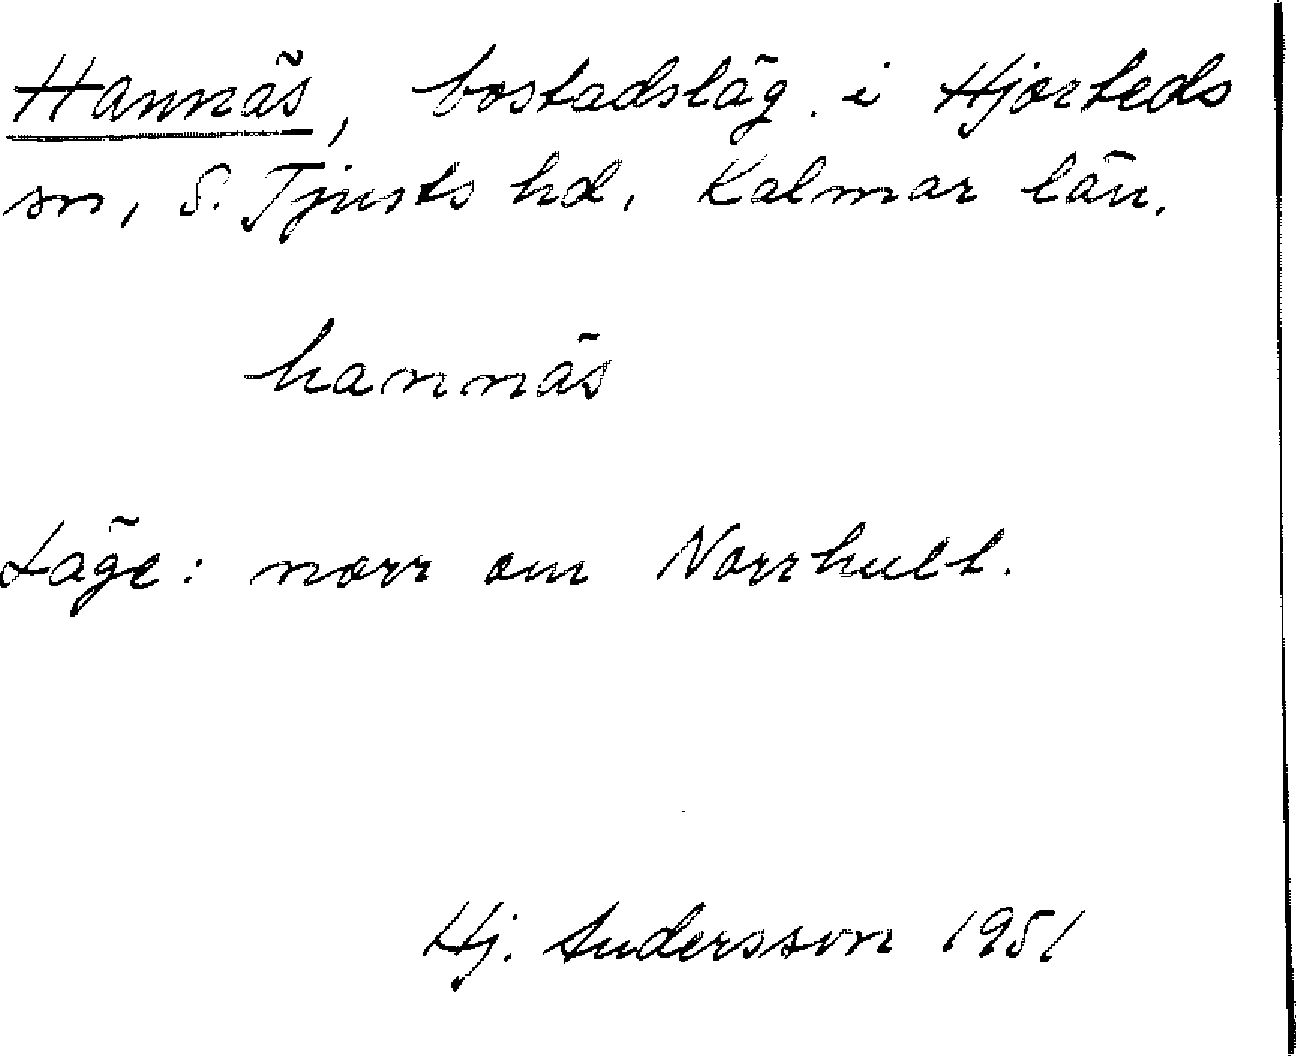 Hannäs, bostadsläg. i Hjorteds
sn, S. Tjusts hd, Kalmar län.
hannäs
Läge: norr om Norrhult.
Hj. Andersson 1951